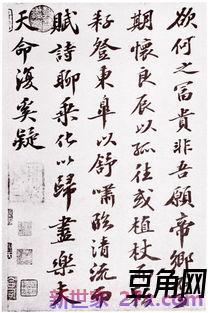 欲何之富貴非吾願帝鄉
期懷良辰以孤往或植杖
耔登東皋以舒嘯臨清流而
賦詩聊乘化以歸盡樂夫
天命復奚疑
新世家
豆角网